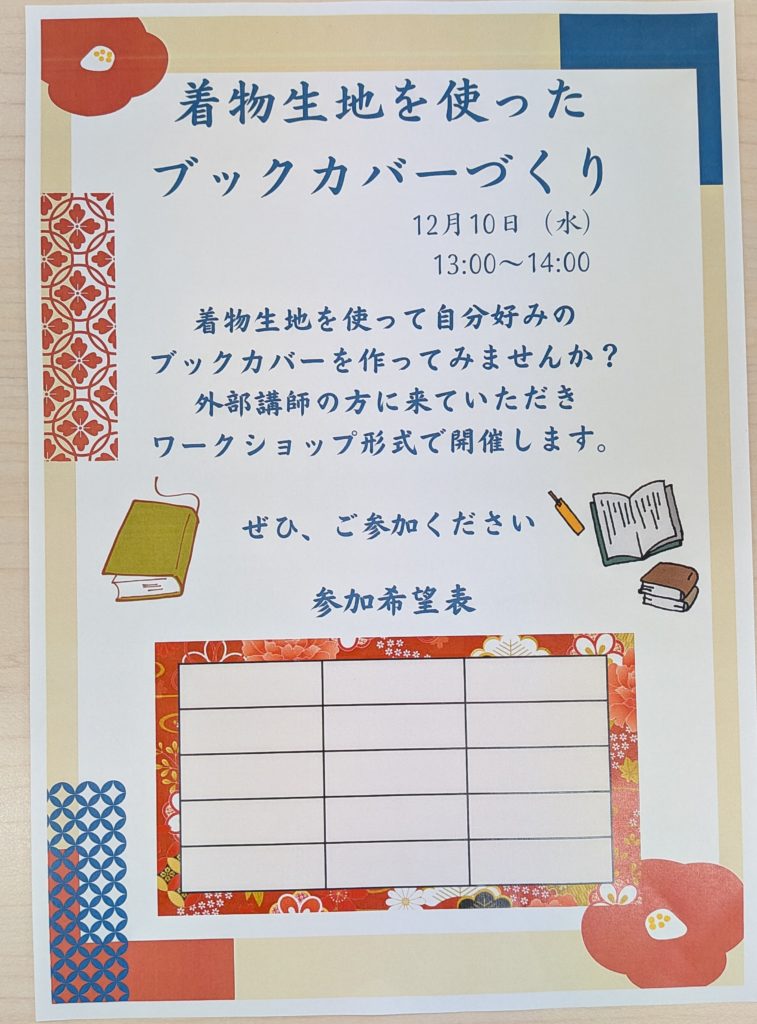 着物生地を使った
ブックカバーづくり
12月10日（水）
13:00～14:00
着物生地を使って自分好みの
ブックカバーを作ってみませんか？
外部講師の方に来ていただき
ワークショップ形式で開催します。
ぜひ、ご参加ください
参加希望表